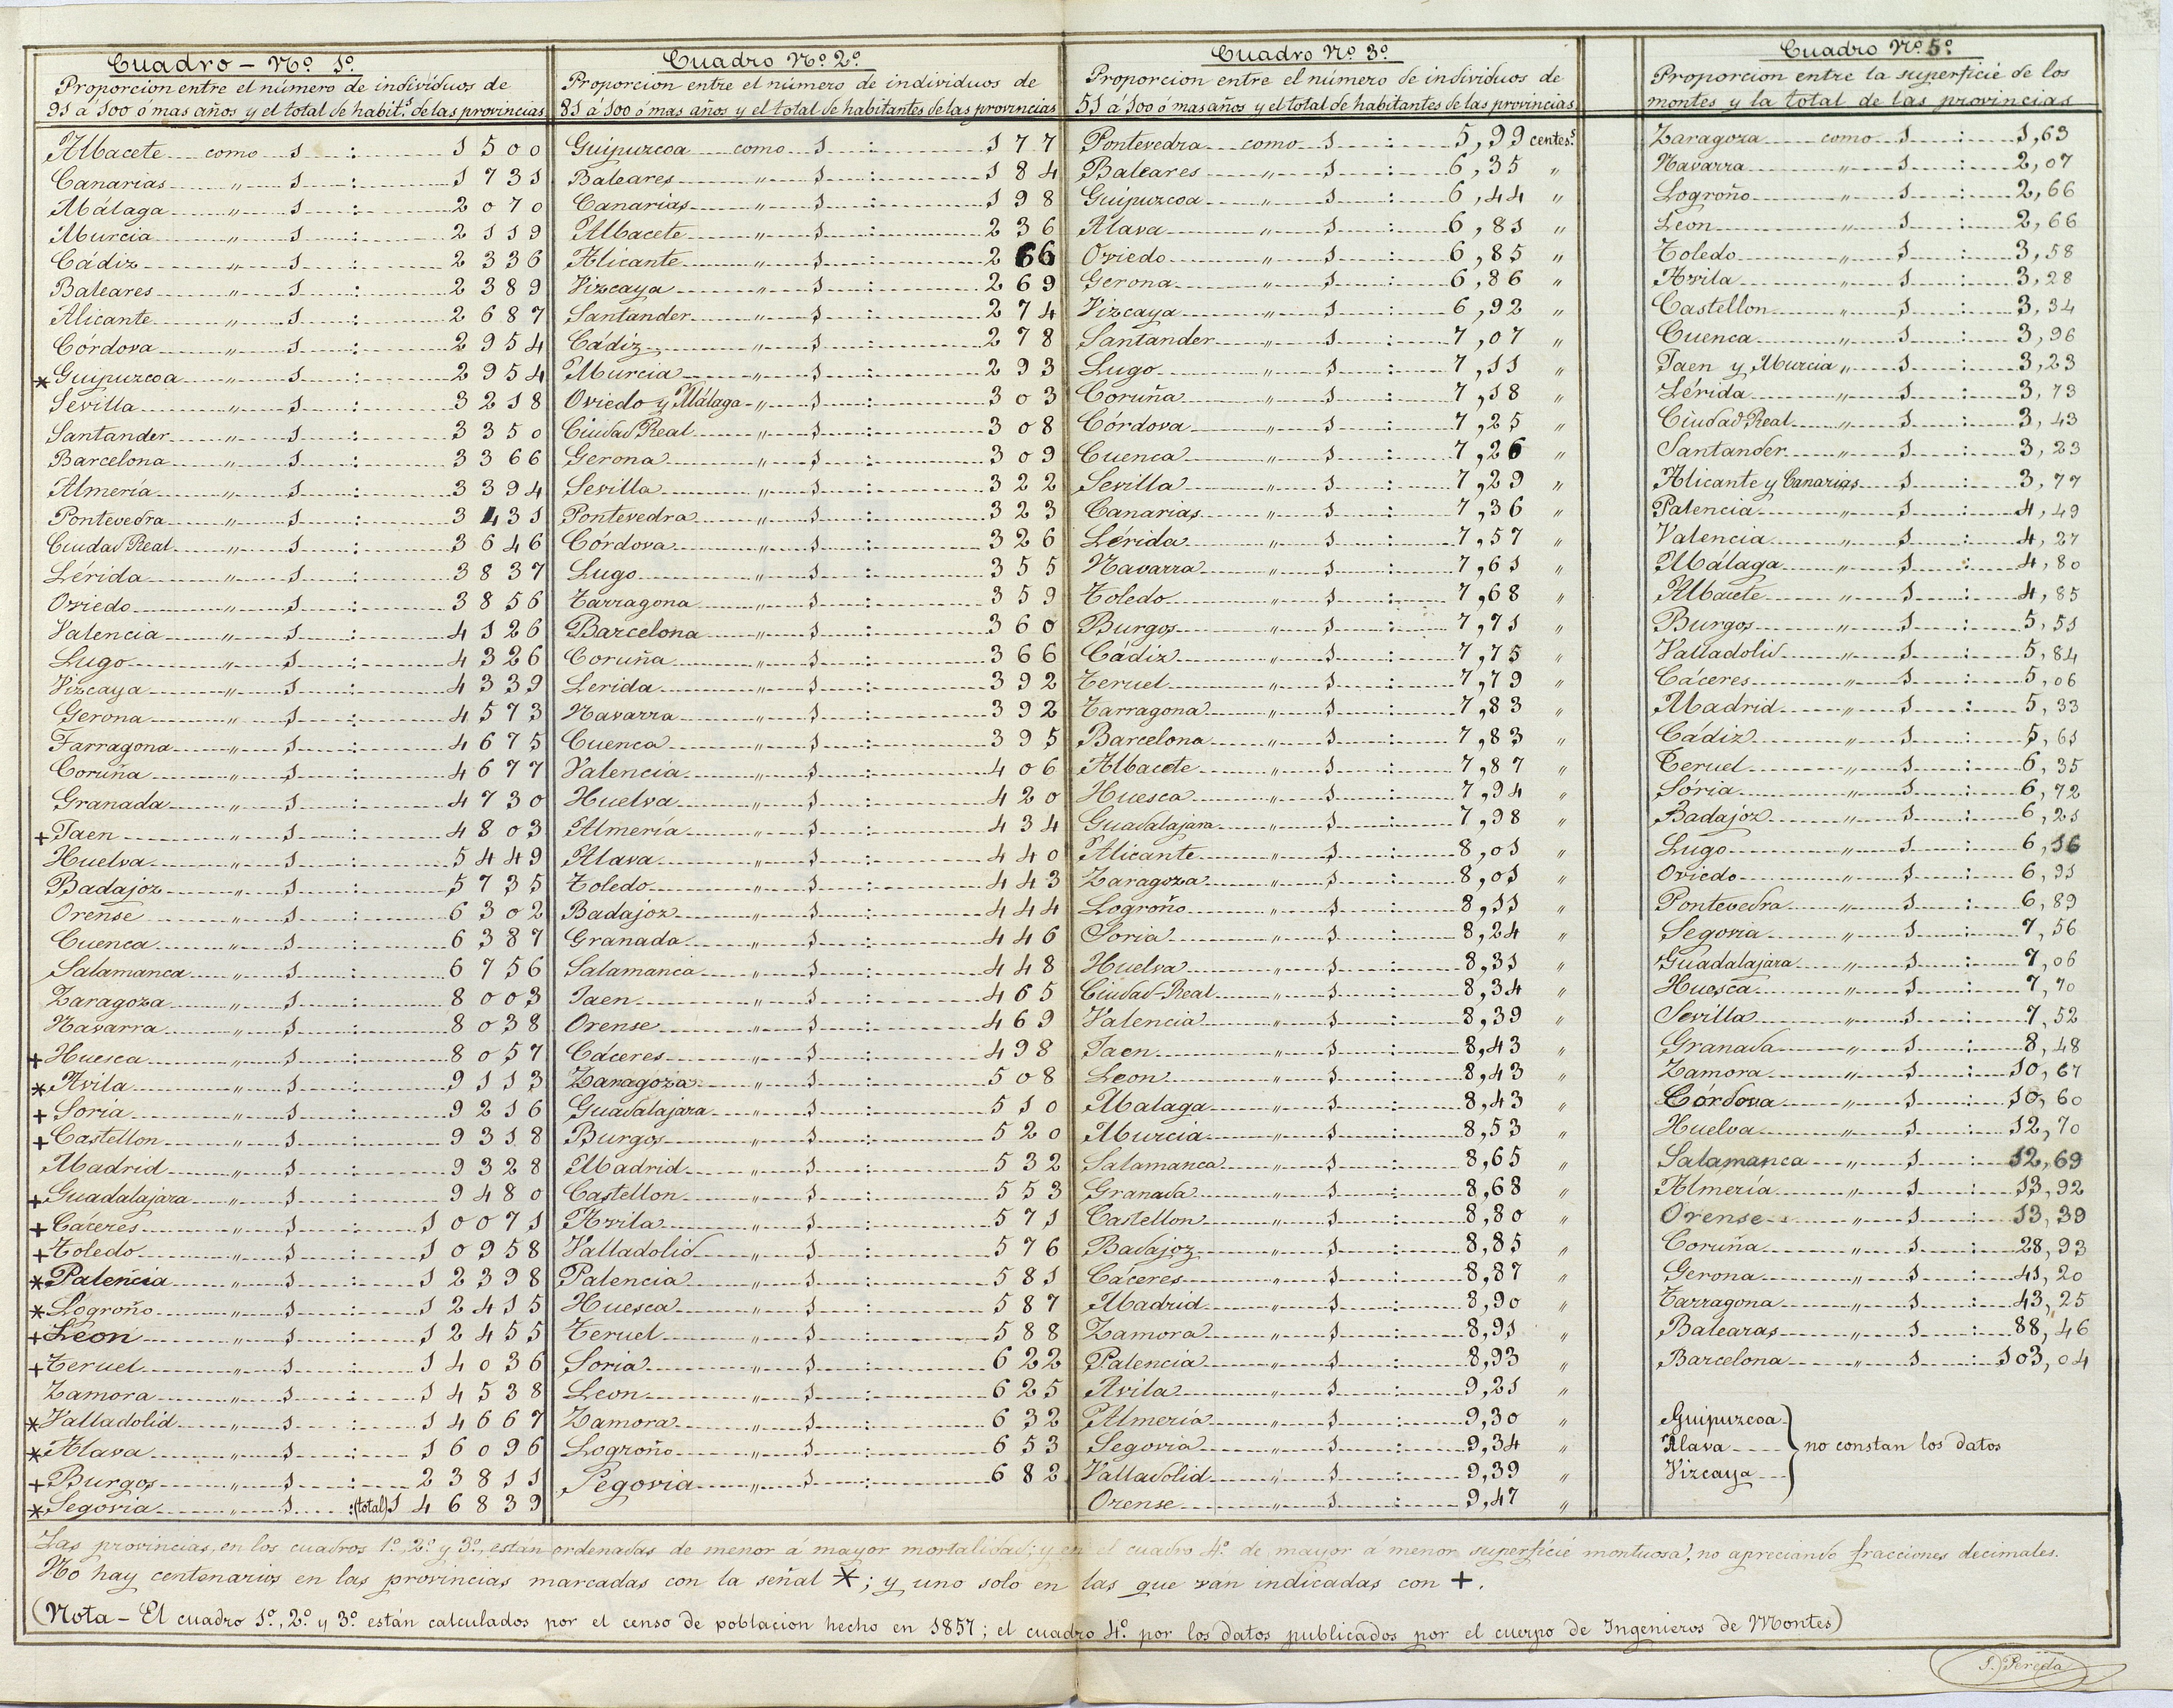 Cuadro – Nº 1º
Proporcion entre el número de individuos de
91 á 100 ó mas años y el total de habit.s de las provincias
Albacete como 1 : 1500
Canarias „ 1 : 1731
Málaga „ 1 : 2070
Murcia „ 1 : 2119
Cádiz „ 1 : 2336
Baleares „ 1 : 2389
Alicante „ 1 : 2687
Córdova „ 1 : 2954
* Guipuzcoa „ 1 : 2954
Sevilla „ 1 : 3218
Santander „ 1 : 3350
Barcelona „ 1 : 3366
Almería „ 1 : 3394
Pontevedra „ 1 : 3431
Ciudad Real „ 1 : 3646
Lérida „ 1 : 3837
Oviedo „ 1 : 3856
Valencia „ 1 : 4126
Lugo „ 1 : 4326
Vizcaya „ 1 : 4339
Gerona „ 1 : 4573
Tarragona „ 1 : 4675
Coruña „ 1 : 4677
Granada „ 1 : 4730
+ Jaen „ 1 : 4803
Huelva „ 1 : 5449
Badajoz „ 1 : 5735
Orense „ 1 : 6302
Cuenca „ 1 : 6387
Salamanca „ 1 : 6756
Zaragoza „ 1 : 8003
Navarra „ 1 : 8038
+ Huesca „ 1 : 8057
* Avila „ 1 : 9113
+ Soria „ 1 : 9216
+ Castellon „ 1 : 9318
Madrid „ 1 : 9328
+ Guadalajara „ 1 : 9480
+ Cáceres „ 1 : 10071
+ Toledo „ 1 : 10958
* Palencia „ 1 : 12398
* Logroño „ 1 : 12415
+ Leon „ 1 : 12455
+ Teruel „ 1 : 14036
Zamora „ 1 : 14538
* Valladolid „ 1 : 14667
* Alava „ 1 : 16096
+ Burgos „ 1 : 23811
* Segovia „ 1 : (total) 146839
Cuadro Nº 2º
Proporcion entre el número de individuos de
81 á 100 ó mas años y el total de habitantes de las provincias
Guipuzcoa como 1 : 177
Baleares „ 1 : 184
Canarias „ 1 : 198
Albacete „ 1 : 236
Alicante „ 1 : 266
Vizcaya „ 1 : 269
Santander „ 1 : 274
Cádiz „ 1 : 278
Murcia „ 1 : 293
Oviedo y Málaga „ 1 : 303
Ciudad Real „ 1 : 308
Gerona „ 1 : 309
Sevilla „ 1 : 322
Pontevedra „ 1 : 323
Córdova „ 1 : 326
Lugo „ 1 : 355
Tarragona „ 1 : 359
Barcelona „ 1 : 360
Coruña „ 1 : 366
Lerida „ 1 : 392
Navarra „ 1 : 392
Cuenca „ 1 : 395
Valencia „ 1 : 406
Huelva „ 1 : 420
Almería „ 1 : 434
Alava „ 1 : 440
Toledo „ 1 : 443
Badajoz „ 1 : 444
Granada „ 1 : 446
Salamanca „ 1 : 448
Jaen „ 1 : 465
Orense „ 1 : 469
Cáceres „ 1 : 498
Zaragoza „ 1 : 508
Guadalajara „ 1 : 510
Burgos „ 1 : 520
Madrid „ 1 : 532
Castellon „ 1 : 553
Avila „ 1 : 571
Valladolid „ 1 : 576
Palencia „ 1 : 581
Huesca „ 1 : 587
Teruel „ 1 : 588
Soria „ 1 : 622
Leon „ 1 : 625
Zamora „ 1 : 632
Logroño „ 1 : 653
Segovia „ 1 : 682
Cuadro Nº 3º
Proporcion entre el número de individuos de
51 á 100 ó mas años y el total de habitantes de las provincias
Pontevedra como 1 : 5,99 centes.s
Baleares „ 1 : 6,35 „
Guipuzcoa „ 1 : 6,44 „
Alava „ 1 : 6,81 „
Oviedo „ 1 : 6,85 „
Gerona „ 1 : 6,86 „
Vizcaya „ 1 : 6,92 „
Santander „ 1 : 7,07 „
Lugo „ 1 : 7,11 „
Coruña „ 1 : 7,18 „
Córdova „ 1 : 7,25 „
Cuenca „ 1 : 7,26 „
Sevilla „ 1 : 7,29 „
Canarias „ 1 : 7,36 „
Lérida „ 1 : 7,57 „
Navarra „ 1 : 7,61 „
Toledo „ 1 : 7,68 „
Burgos „ 1 : 7,71 „
Cádiz „ 1 : 7,75 „
Teruel „ 1 : 7,79 „
Tarragona „ 1 : 7,83 „
Barcelona „ 1 : 7,83 „
Albacete „ 1 : 7,87 „
Huesca „ 1 : 7,94 „
Guadalajara „ 1 : 7,98 „
Alicante „ 1 : 8,01 „
Zaragoza „ 1 : 8,01 „
Logroño „ 1 : 8,11 „
Soria „ 1 : 8,24 „
Huelva „ 1 : 8,31 „
Ciudad-Real „ 1 : 8,34 „
Valencia „ 1 : 8,39 „
Jaen „ 1 : 8,43 „
Leon „ 1 : 8,43 „
Malaga „ 1 : 8,43 „
Murcia „ 1 : 8,53 „
Salamanca „ 1 : 8,65 „
Granada „ 1 : 8,68 „
Castellon „ 1 : 8,80 „
Badajoz „ 1 : 8,85 „
Cáceres „ 1 : 8,87 „
Madrid „ 1 : 8,90 „
Zamora „ 1 : 8,91 „
Palencia „ 1 : 8,93 „
Avila „ 1 : 9,21 „
Almería „ 1 : 9,30 „
Segovia „ 1 : 9,34 „
Valladolid „ 1 : 9,39 „
Orense „ 1 : 9,47 „
Cuadro Nº 5º
Proporcion entre la superficie de los
montes y la total de las provincias
Zaragoza como 1 : 1,63
Navarra „ 1 : 2,07
Logroño „ 1 : 2,66
Leon „ 1 : 2,66
Toledo „ 1 : 3,58
Avila „ 1 : 3,28
Castellon „ 1 : 3,34
Cuenca „ 1 : 3,96
Jaen y Murcia „ 1 : 3,23
Lérida „ 1 : 3,73
Ciudad Real „ 1 : 3,43
Santander „ 1 : 3,23
Alicante y Canarias 1 : 3,77
Palencia „ 1 : 4,49
Valencia „ 1 : 4,27
Málaga „ 1 : 4,80
Albacete „ 1 : 4,85
Burgos „ 1 : 5,51
Valladolid „ 1 : 5,84
Cáceres „ 1 : 5,06
Madrid „ 1 : 5,33
Cádiz „ 1 : 5,61
Teruel „ 1 : 6,35
Sória „ 1 : 6,72
Badajoz „ 1 : 6,21
Lugo „ 1 : 6,16
Oviedo „ 1 : 6,91
Pontevedra „ 1 : 6,89
Segovia „ 1 : 7,56
Guadalajara „ 1 : 7,06
Huesca „ 1 : 7,70
Sevilla „ 1 : 7,52
Granada „ 1 : 8,48
Zamora „ 1 : 10,67
Córdova „ 1 : 10,60
Huelva „ 1 : 12,70
Salamanca „ 1 : 12,69
Almería „ 1 : 13,92
Orense „ 1 : 13,39
Coruña „ 1 : 28,93
Gerona „ 1 : 41,20
Tarragona „ 1 : 43,25
Balearas „ 1 : 88,46
Barcelona „ 1 : 103,04
Guipuzcoa
Alava } no constan los datos
Vizcaya
Las provincias, en los cuadros 1º, 2º y 3º, están ordenadas de menor á mayor mortalidad; y en el cuadro 4º de mayor á menor superficie montuosa, no apreciando fracciones decimales.
No hay centenarios en las provincias marcadas con la señal *; y uno solo en las que van indicadas con +.
(Nota – El cuadro 1º, 2º y 3º están calculados por el censo de poblacion hecho en 1857; el cuadro 4º por los datos publicados por el cuerpo de Ingenieros de Montes)
S. Pereda